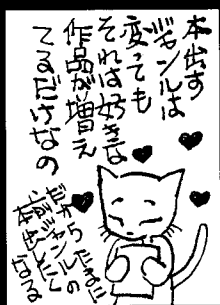 本出す
ジャンルは
変っても
それは好きな
作品が増え
てるだけなの
だからたまに
前ジャンルの
本が出したく
なる